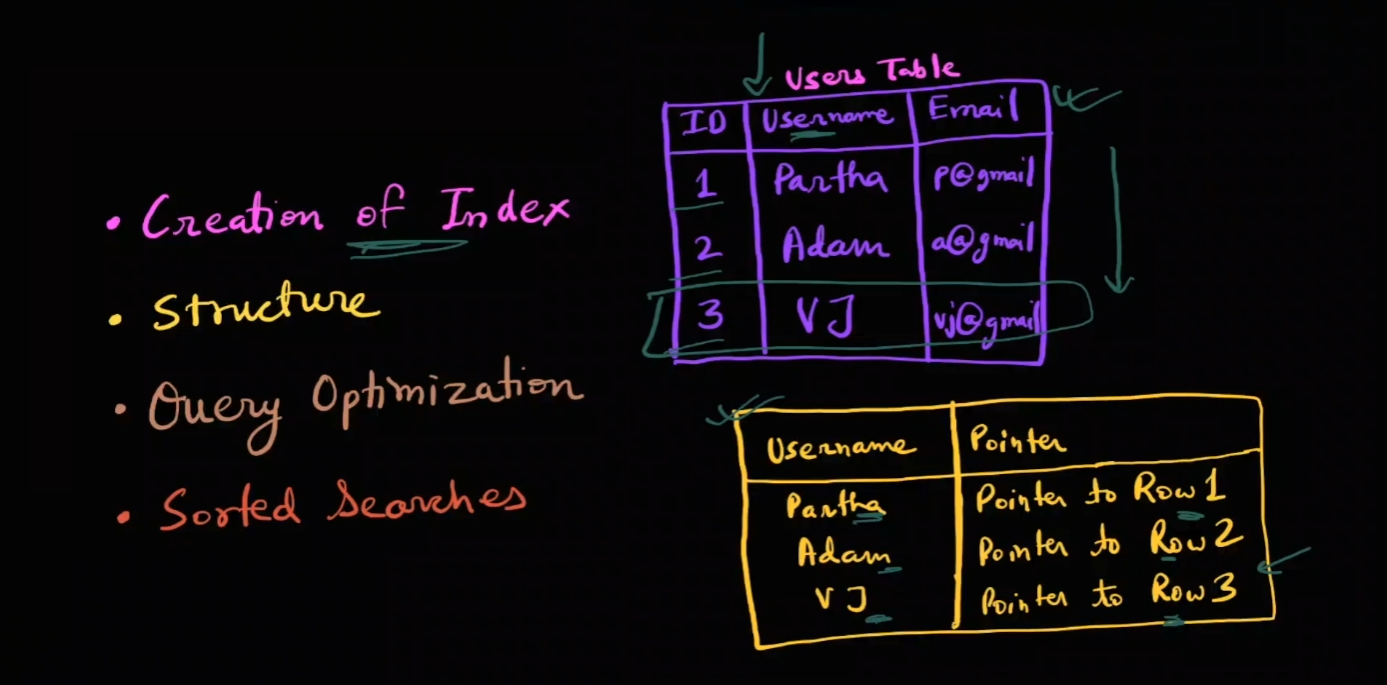 • Creation of Index
• Structure
• Query Optimization
• Sorted Searches
Users Table
ID Username Email
1 Partha p@gmail
2 Adam a@gmail
3 VJ vj@gmail
Username Pointer
Partha Pointer to Row 1
Adam Pointer to Row 2
VJ Pointer to Row 3